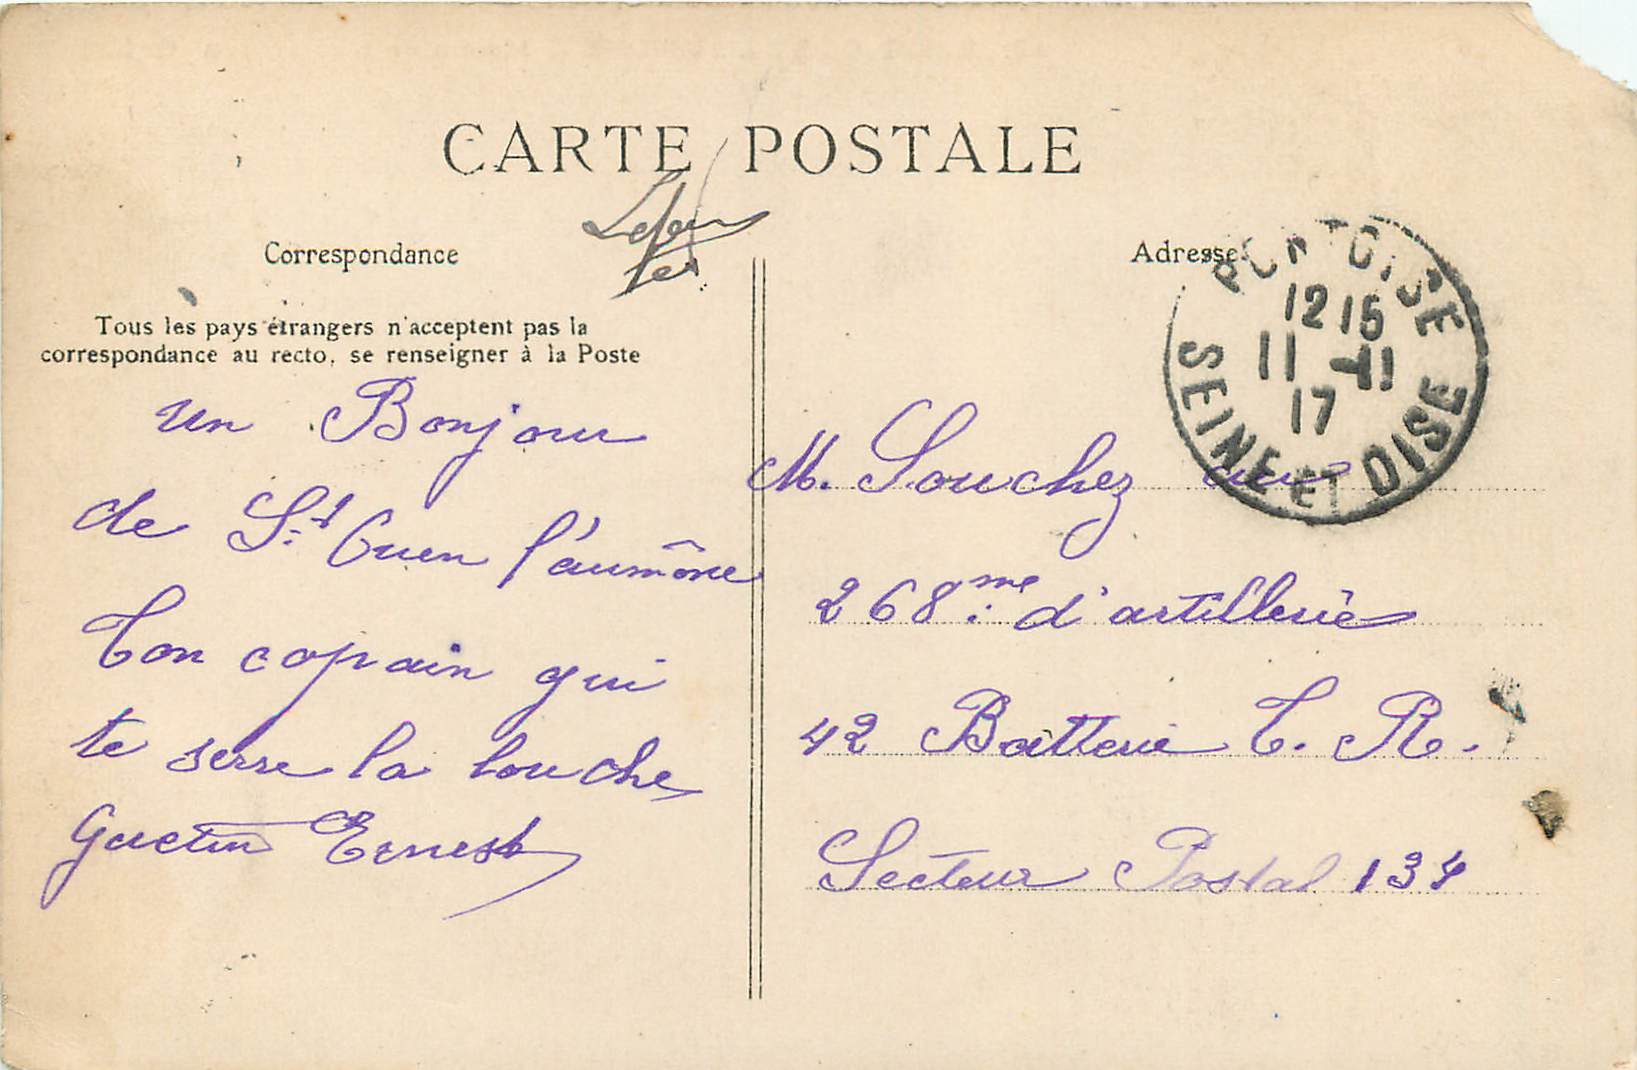 CARTE POSTALE
Correspondance
Tous les pays étrangers n'acceptent pas la
correspondance au recto, se renseigner à la Poste
un Bonjour
de St Ouen l'aumône
Ton copain qui
te serre la louche
Ernest
Adresse
PONTOISE
12 15
11 -11
17
SEINE ET OISE
M. Souchez au
268me d'artillerie
42 Batterie T. R.
Secteur Postal 134